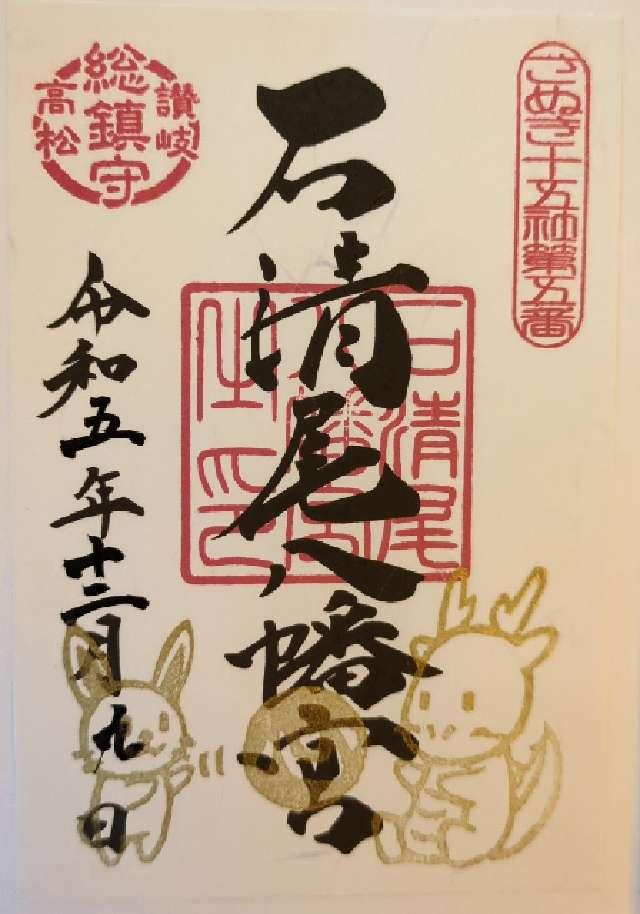 さぬき十五社第五番
石清尾八幡宮
石清尾
八幡宮
之印
讃岐
総鎮守
高松
令和五年十二月九日